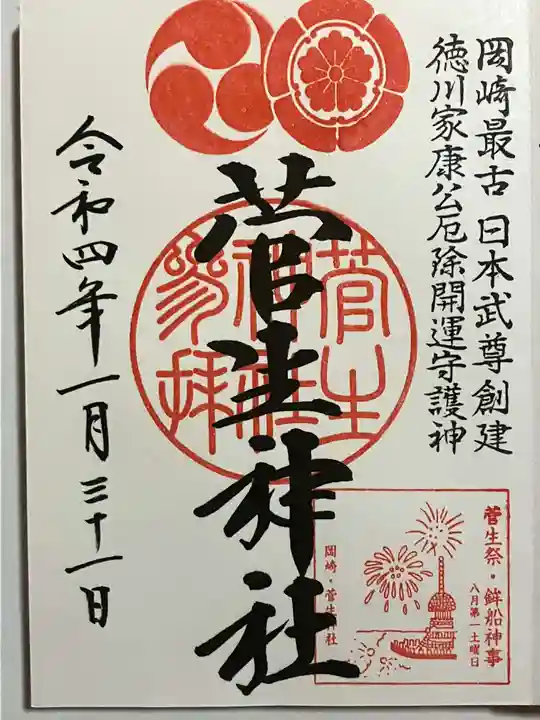 岡崎最古 日本武尊創建
徳川家康公厄除開運守護神
菅生神社
菅生
神社
参拝
令和四年一月三十一日
菅生祭・鉾船神事
八月第一土曜日
岡崎・菅生神社